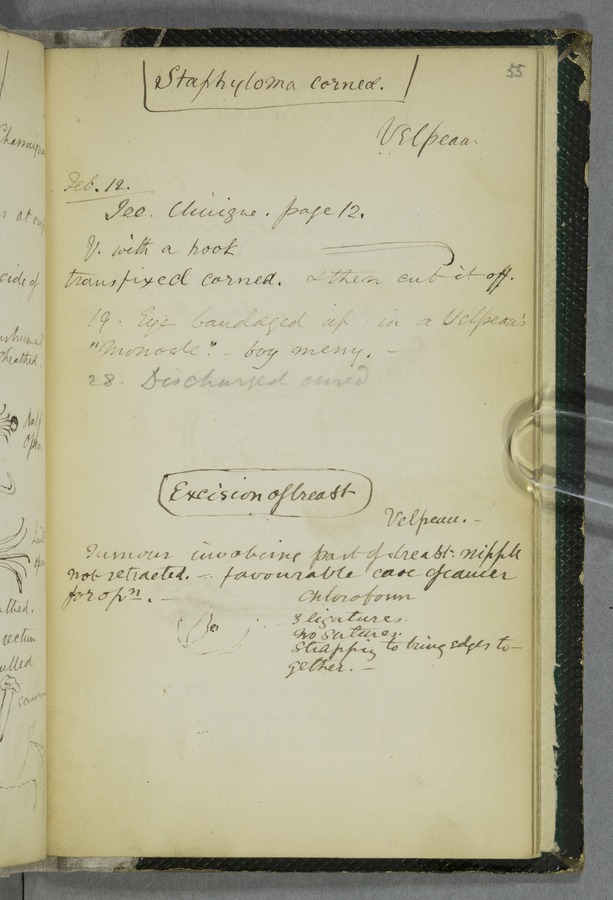 55
Staphyloma corneæ.
Velpeau.
Feb. 12.
See. Clinique. page 12.
V. with a hook
transfixed corneæ. & then cut it off.
19. Eye bandaged up in a Velpeau's
"Monocle". - boy merry. -
28. Discharged cured
Excision of breast
Velpeau. -
Tumour involving part of breast. nipple
not retracted. - favourable case of cancer
for opn. -
Chloroform
3 ligatures.
no sutures.
Strapping to bring edges to-
gether. -
side of
half
open
rectum